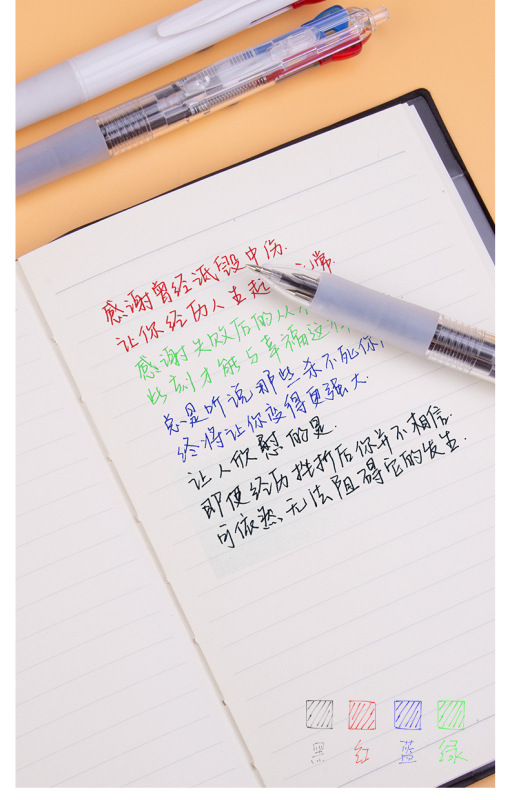 感谢曾经诋毁中伤.
让你经历人生起 常.
感谢失败后的从
此刻才能与幸福这
总是听说那些杀不死你,
终将让你变得更强大.
让人欣慰的是.
即便经历挫折后你并不相信.
可依然无法阻碍它的发生.
黑 红 蓝 绿